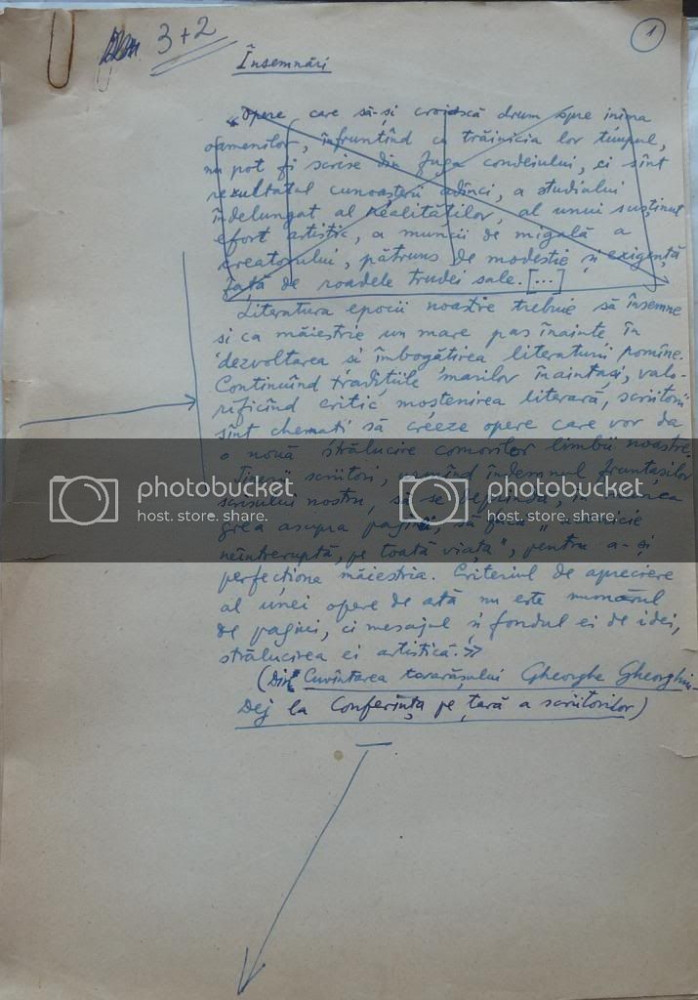 3+2
1
Însemnări
„Opere care să-și croiască drum spre inima
oamenilor, înfruntînd cu trăinicia lor timpul,
nu pot fi scrise din fuga condeiului, ci sînt
rezultatul cunoașterii adînci, a studiului
îndelungat al realităților, al unui susținut
efort artistic, a muncii de migală a
creatorului, pătruns de modestie și exigență
față de roadele trudei sale. [...]
Literatura epocii noastre trebuie să însemne
și ca măiestrie un mare pas înainte în
dezvoltarea și îmbogățirea literaturii romîne.
Continuînd tradițiile marilor înaintași, valo-
rificînd critic moștenirea literară, scriitorii
sînt chemați să creeze opere care vor da
o nouă strălucire comorilor limbii noastre.
Tinerii scriitori, urmînd îndemnul fruntașilor
scrisului nostru, să se deprindă, în munca
grea asupra paginii, să facă „ucenicie
neîntreruptă, pe toată viața", pentru a-și
perfecționa măiestria. Criteriul de apreciere
al unei opere de artă nu este numărul
de pagini, ci mesajul și fondul ei de idei,
strălucirea ei artistică.»
(Din Cuvîntarea tovarășului Gheorghe Gheorghiu
Dej la Conferința pe țară a scriitorilor)
photobucket
host. store. share.
photobucket
host. store. share.